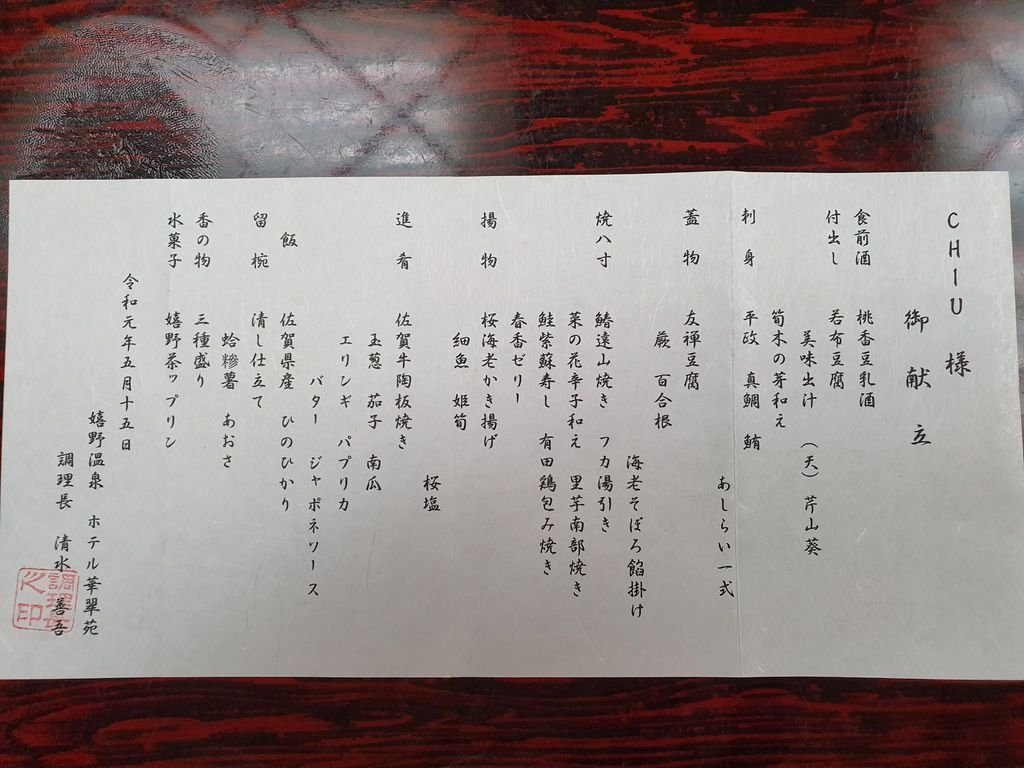 CHIU 様
御献立
食前酒 桃香豆乳酒
付出し 若布豆腐
美味出汁 (天) 芹山葵
筍木の芽和え
刺身 平政 真鯛 鮪
あしらい一式
蓋物 友禅豆腐
蕨 百合根
海老そぼろ餡掛け
焼八寸 鰆遠山焼き フカ湯引き
菜の花辛子和え 里芋南部焼き
鮭紫蘇寿し 有田鶏包み焼き
春香ゼリー
揚物 桜海老かき揚げ
細魚 姫筍
桜塩
進肴 佐賀牛陶板焼き
玉葱 茄子 南瓜
エリンギ パプリカ
バター ジャポネソース
飯 佐賀県産 ひのひかり
留椀 清し仕立て
蛤糝薯 あおさ
香の物 三種盛り
水菓子 嬉野茶ップリン
令和元年五月十五日
嬉野温泉 ホテル華翠苑
調理長 清水 善吾
調理長之印